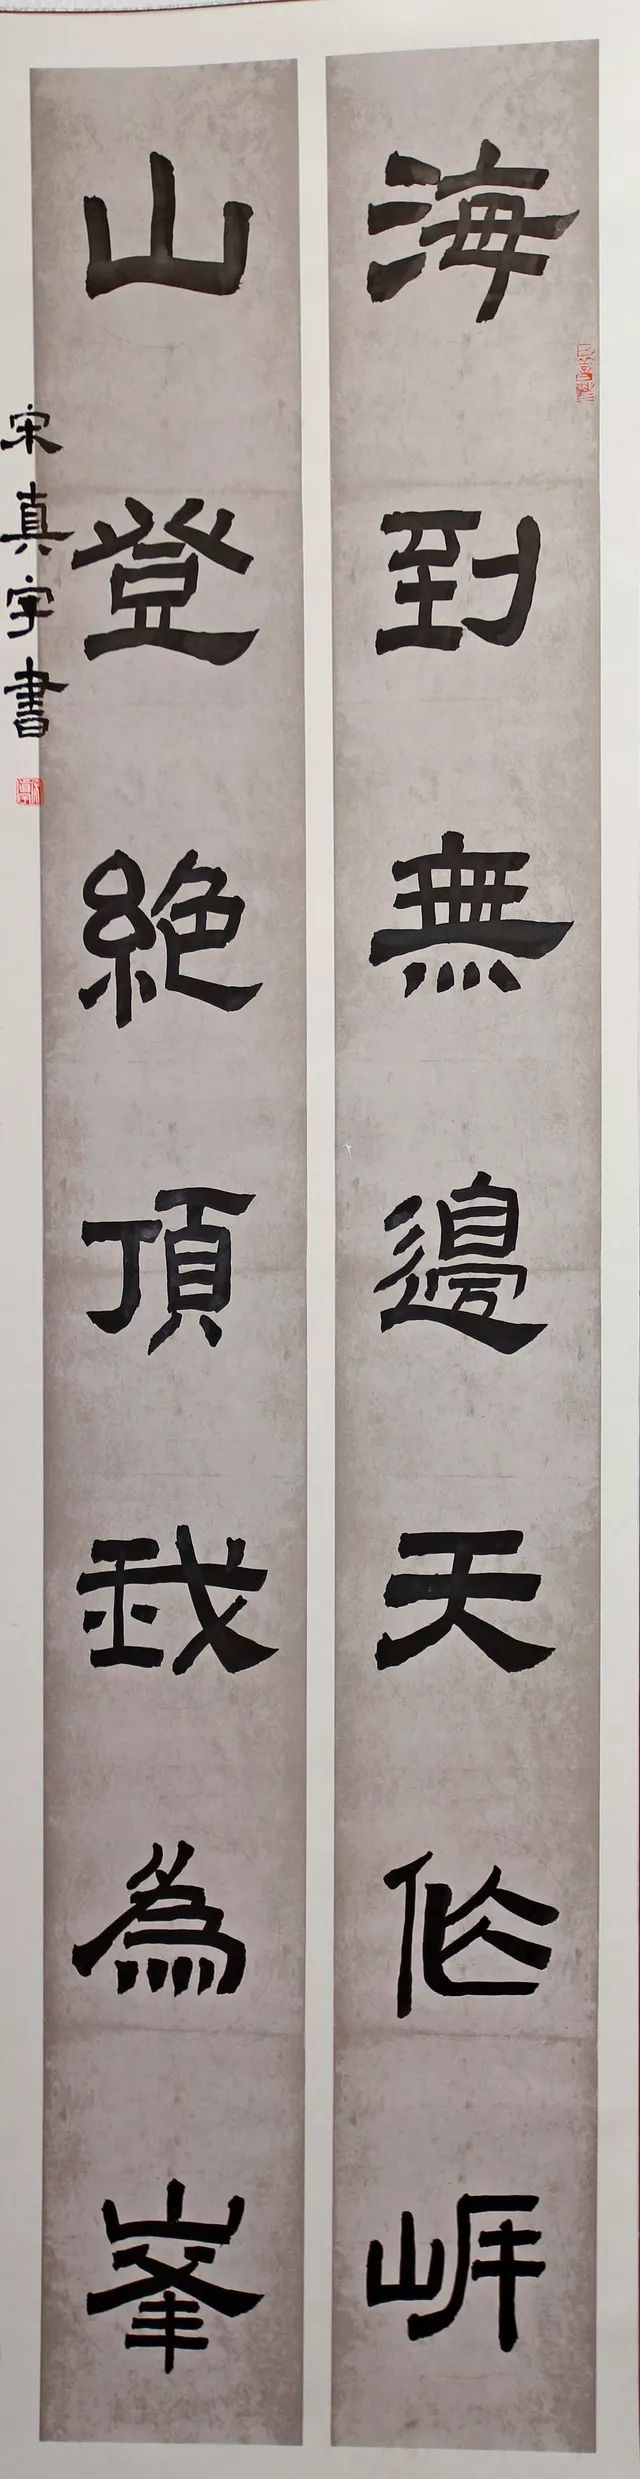 海到無邊天作岸
山登絕頂我為峯
宋真宇書